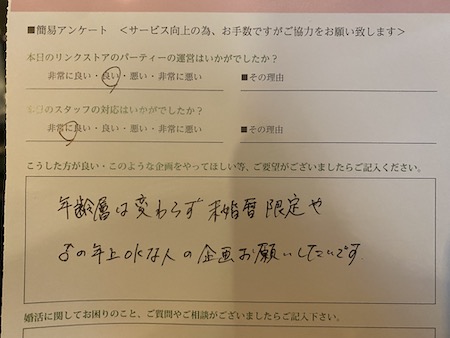 ■簡易アンケート <サービス向上の為、お手数ですがご協力をお願い致します>
本日のリンクストアのパーティーの運営はいかがでしたか?
非常に良い・良い・悪い・非常に悪い ■その理由
本日のスタッフの対応はいかがでしたか?
非常に良い・良い・悪い・非常に悪い ■その理由
こうした方が良い・このような企画をやってほしい等、ご要望がございましたらご記入ください。
年齢層は変わらず未婚暦限定や
♂の年上OKな人の企画お願いしたいです。
婚活に関してお困りのこと、ご質問やご相談がございましたらご記入下さい。